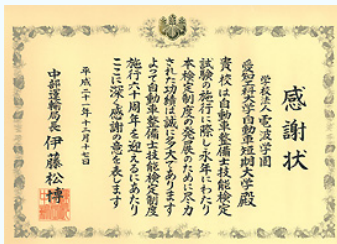 感謝状
学校法人 電波学園
愛知工科大学自動車短期大学殿
貴校は自動車整備士技能検定
試験の施行に際し永年にわたり
本検定制度の発展のために尽力
された功績は誠に多大であります
よって自動車整備士技能検定制度
施行六十周年を迎えるにあたり
ここに深く感謝の意を表します
平成二十一年十二月十七日
中部運輸局長 伊藤松博